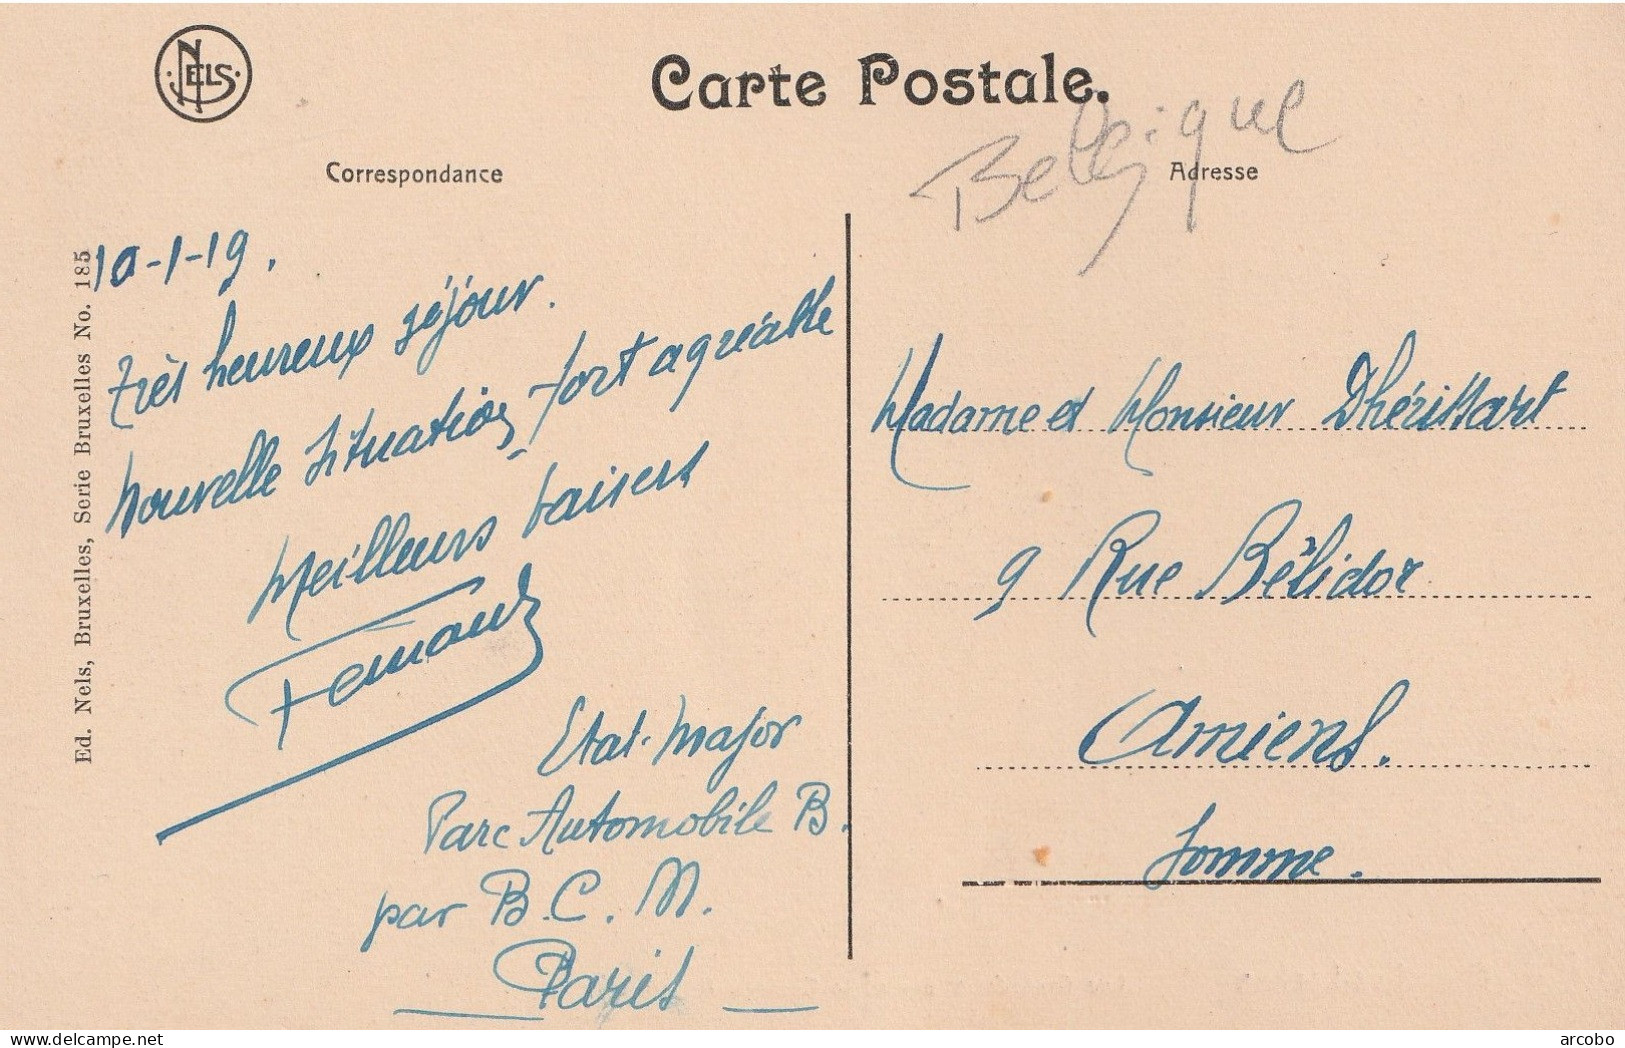 NELS
Carte Postale.
Belgique
Correspondance
Adresse
Ed. Nels, Bruxelles, Serie Bruxelles No. 185
10-1-19.
Très heureux séjour.
Nouvelle situation fort agréable
Meilleurs baisers
Fernand
Etat-Major
Parc Automobile B.
par B.C.M.
Paris
Madame et Monsieur Dhérissart
9 Rue Bélidor
Amiens.
Somme.
© delcampe.net
arcobo